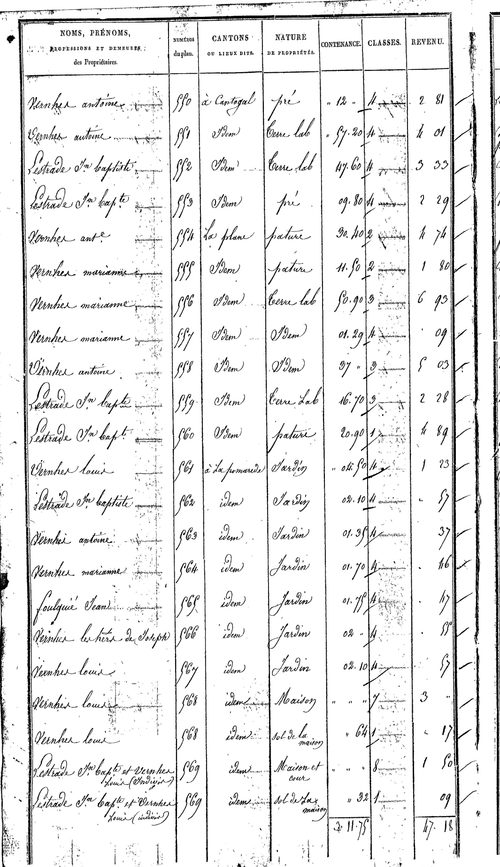 NOMS, PRÉNOMS, PROFESSIONS ET DEMEURES des Propriétaires. NUMÉROS du plan. CANTONS OU LIEUX DITS. NATURE DE PROPRIÉTÉS. CONTENANCE. CLASSES. REVENU.
Vernhes antoine 550 à Cantogal pré " 12 " 4 2 81
Vernhes antoine 551 Idem Terre lab " 57.20 4 4 01
Lestrade Jn baptiste 552 Idem Terre lab 47.60 4 3 33
Lestrade Jn bapte 553 Idem pré 09.80 4 2 29
Vernhes ante 554 La plane pature 30.40 2 4 74
Vernhes marianne 555 Idem pature 11.50 2 1 80
Vernhes marianne 556 Idem Terre lab 50.90 3 6 93
Vernhes marianne 557 Idem Idem 01.29 4 . 09
Vernhes antoine 558 Idem Idem 37 " 3 5 03
Lestrade Jn bapte 559 Idem Terre Lab 16.70 3 2 28
Lestrade Jn bapt. 560 Idem pature 20.90 1 4 89
Vernhes louis 561 à La pomarede Jardin " 04.50 4 1 23
Lestrade Jn baptiste 562 idem Jardin 02.10 4 . 57
Vernhes antoine 563 idem Jardin 01.35 4 37
Vernhes marianne 564 idem Jardin 01.70 4 . 46
foulquié Jean 565 idem Jardin 01.75 4 . 47
Vernhes les hérs de Joseph 566 idem Jardin 02 - 4 . 55
Vernhes louis 567 idem Jardin 02.10 4 . 57
Vernhes louis 568 idem Maison " " " 7 3 "
Vernhes louis 568 idem sol de la maison " 64 1 " 17
Lestrade Jn Bapte et Vernhes Louis (Indivis) 569 idem Maison et cour " " " 8 1 50
Lestrade Jn Bapte et Vernhes Louis (indivis) 569 idem sol de La maison " 32 1 09
3 11.75 47.18